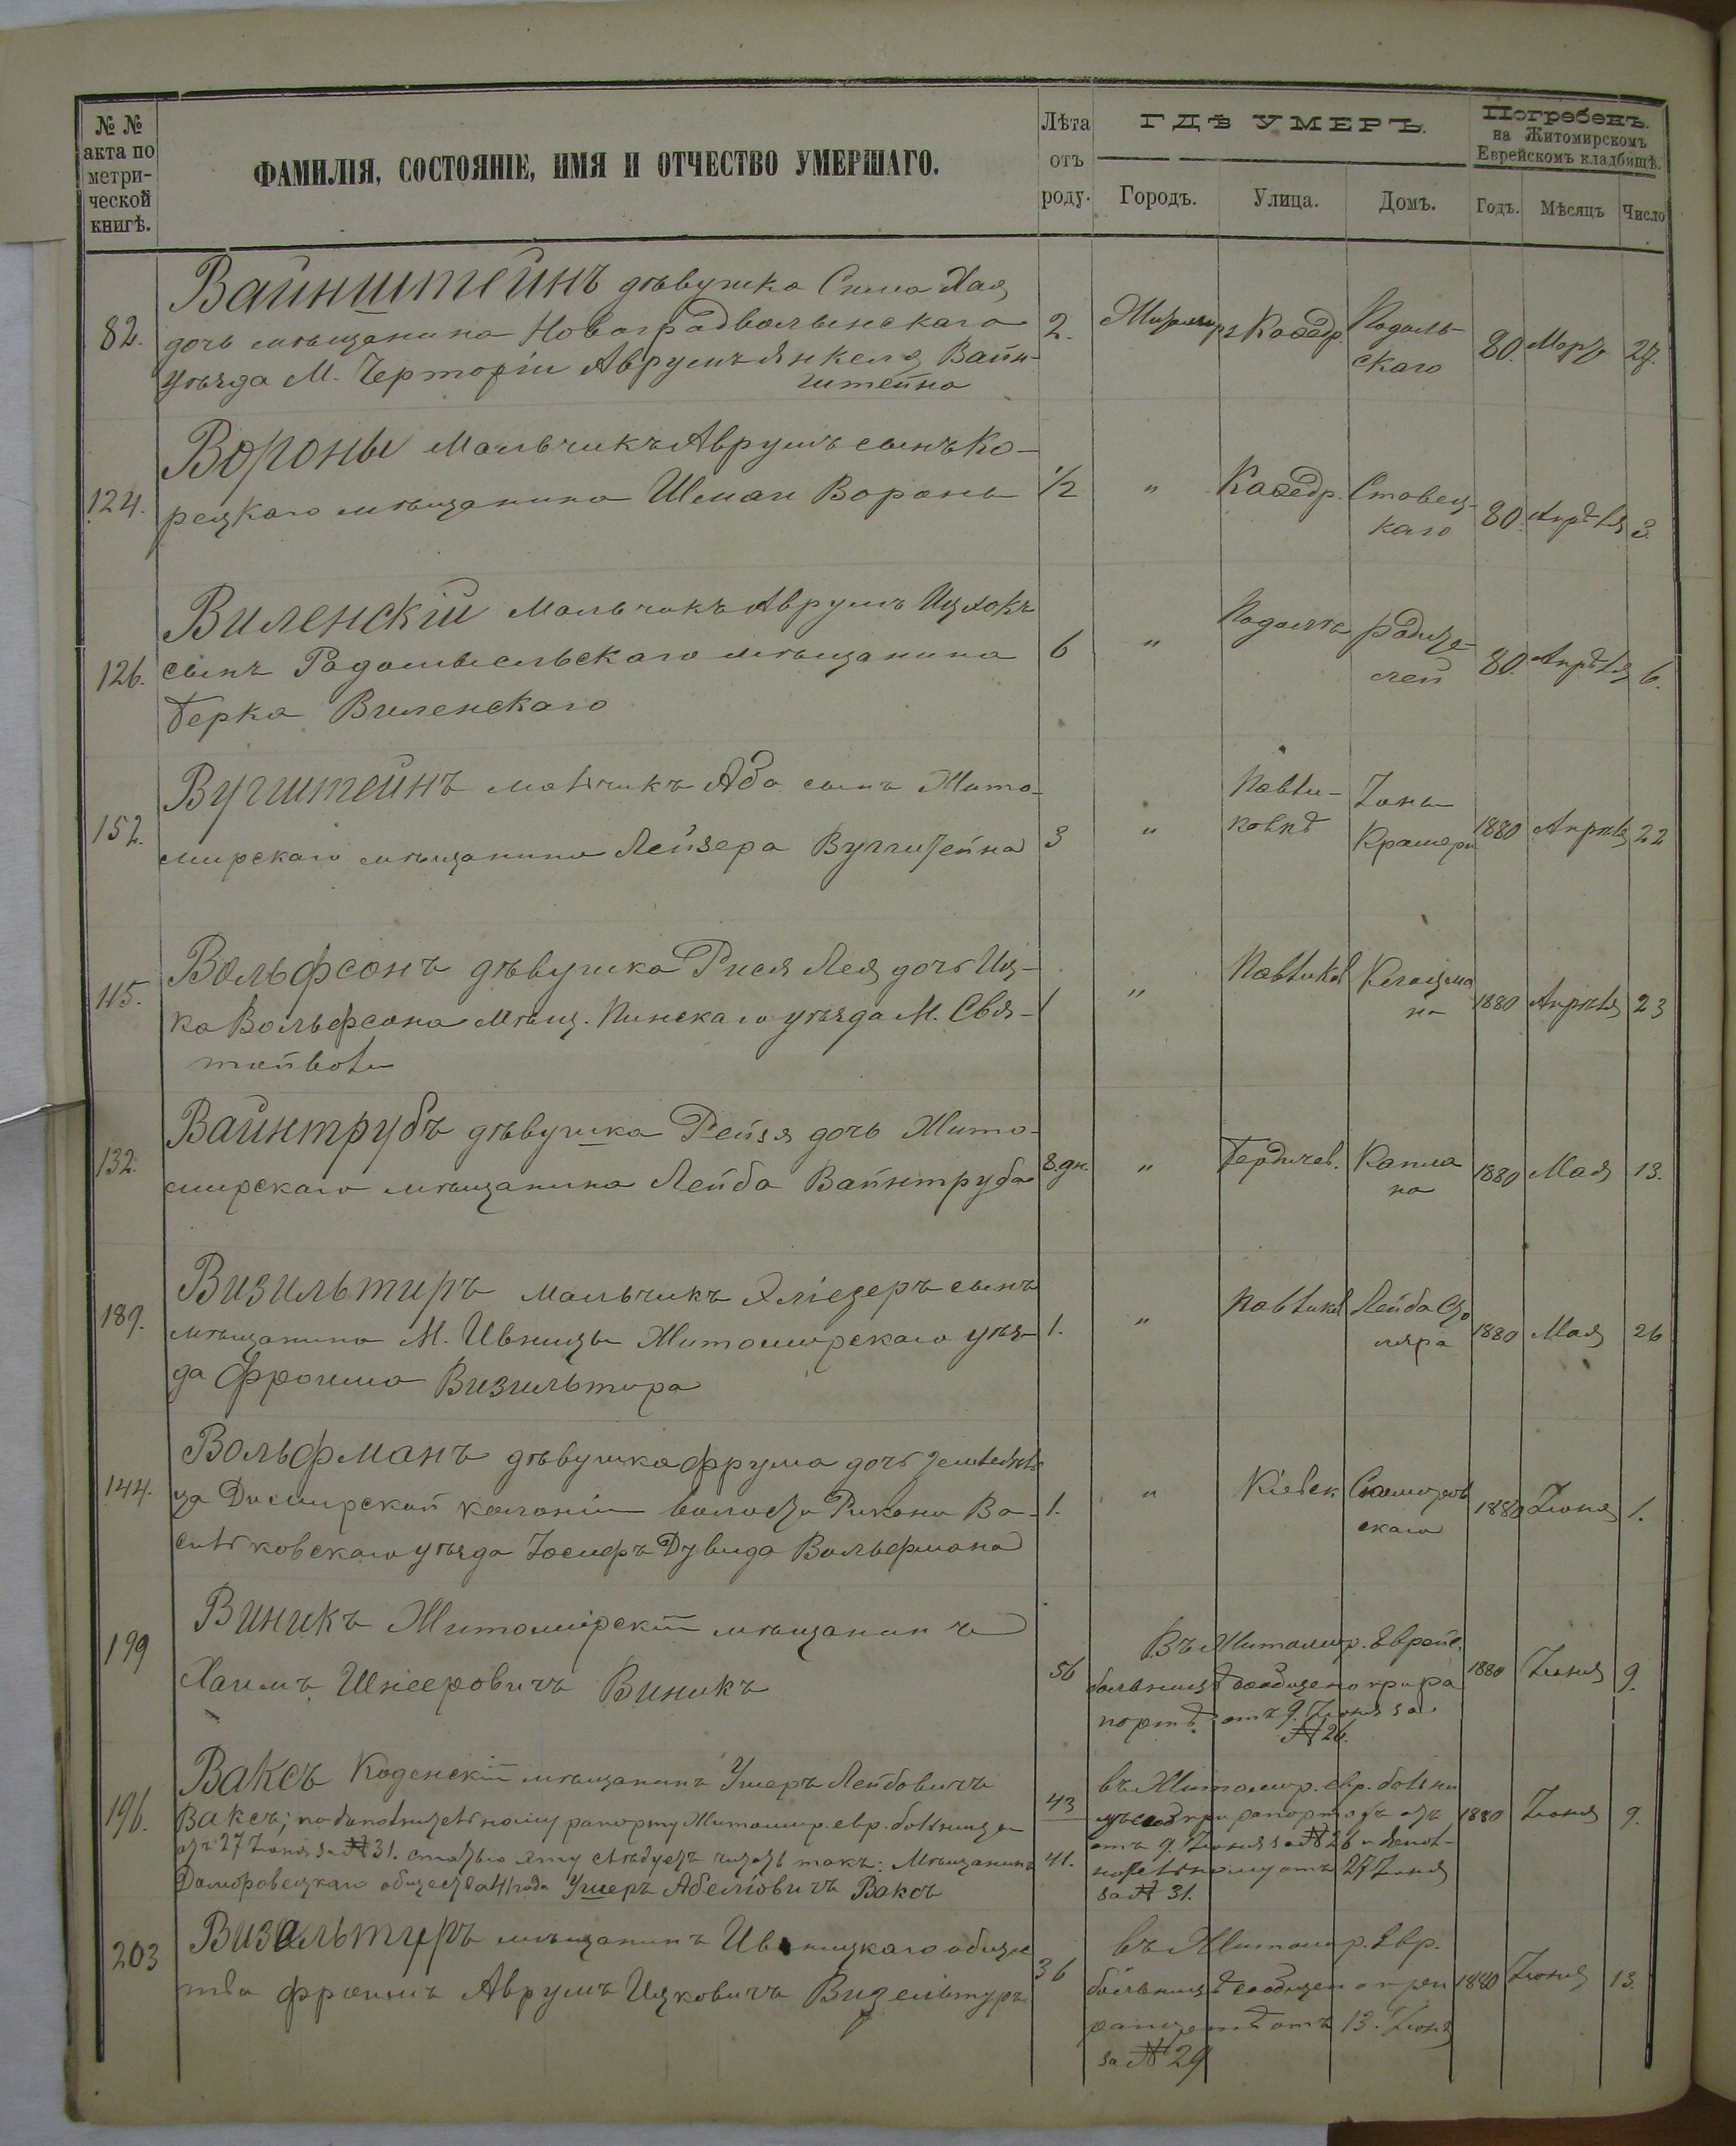 № №
акта по
метри-
ческой
книгѣ.
ФАМИЛІЯ, СОСТОЯНІЕ, ИМЯ И ОТЧЕСТВО УМЕРШАГО.
Лѣта
отъ
роду.
ГДѢ УМЕРЪ.
Городъ.
Улица.
Домъ.
Погребенъ.
на Житомирскомъ
Еврейскомъ кладбищѣ.
Годъ.
Мѣсяцъ
Число
82.
Вайнштейнъ дѣвушка Сима Хая
дочь мѣщанина Новоградволынскаго
уѣзда М. Черторіи Аврумъ Янкеля Вайн-
штейна
2.
Житомиръ
Каѳедр.
Подоль-
скаго
80.
Мартъ
27.
124.
Вороны мальчикъ Аврумъ сынъ Ко-
рецкаго мѣщанина Шман Вороны
1/2
"
Каѳедр.
Ставец-
каго
80.
Апрѣля
3.
126.
Виленскій мальчикъ Аврумъ Ицхокъ
сынъ Радомысльскаго мѣщанина
Берка Виленскаго
6
"
родите-
лей
80.
Апрѣля
6.
152.
Вугштейнъ мальчикъ Аба сынъ Жито-
мирскаго мѣщанина Лейзера Вугштейна
3
"
Павли-
ковкѣ
Іоны
Крамера
1880
Апрѣля
22
115.
Вольфсонъ дѣвушка Рися Лея дочь Иц-
ка Вольфсона мѣщ. Пинскаго уѣзда М. Свя-
тайволи
1
"
Павликов
на
1880
Апрѣля
23
132.
Вайнтрубъ дѣвушка Рейзя дочь Жито-
мирскаго мѣщанина Лейба Вайнтруба
8. дн.
"
Бердичев.
Капла
на
1880
Мая
13.
189.
Визильтиръ мальчикъ Эліезеръ сынъ
мѣщанина М. Ивницы Житомирскаго уѣз-
да Фроима Визильтира
1.
"
Павликов
Лейба Сто
ляра
1880
Мая
26
144.
Вольфманъ дѣвушка Фрума дочь земледѣль
ца колоніи волости Ва-
сильковскаго уѣзда Іосифъ Дувида Вольфмана
1.
"
Кіевск
скаго
1880
Іюня
1.
199
Виникъ Житомірскій мѣщанинъ
Хаимъ Шнееровичъ Виникъ
56
Въ Житомир. Еврейс.
больницѣ сообщено при ра
портѣ отъ 9. Іюня за
№ 26.
1880
Іюня
9.
196.
Ваксъ Коденскій мѣщанинъ Ушеръ Лейбовичъ
Ваксъ; по дополнительному рапорту Житомир. евр. больницы
отъ 27 Іюня за № 31. статью эту слѣдуетъ читать такъ: Мѣщанинъ
общества 41 года Ушеръ Абеліовичъ Ваксъ
43
41.
въ Житомир. евр. больни
цѣ при рапорта
отъ 9. Іюня за № 26 и допол-
нительному отъ 27 Іюня
за № 31.
1880
Іюня
9.
203
Визельтиръ мѣщанинъ Ивницкаго общес
тва Фроимъ Аврумъ Ицковичъ Визельтуръ
36
въ Житомир. Евр.
больницѣ сообщено при
рапортѣ отъ 13. Іюня
за № 29
1880
Іюня
13.